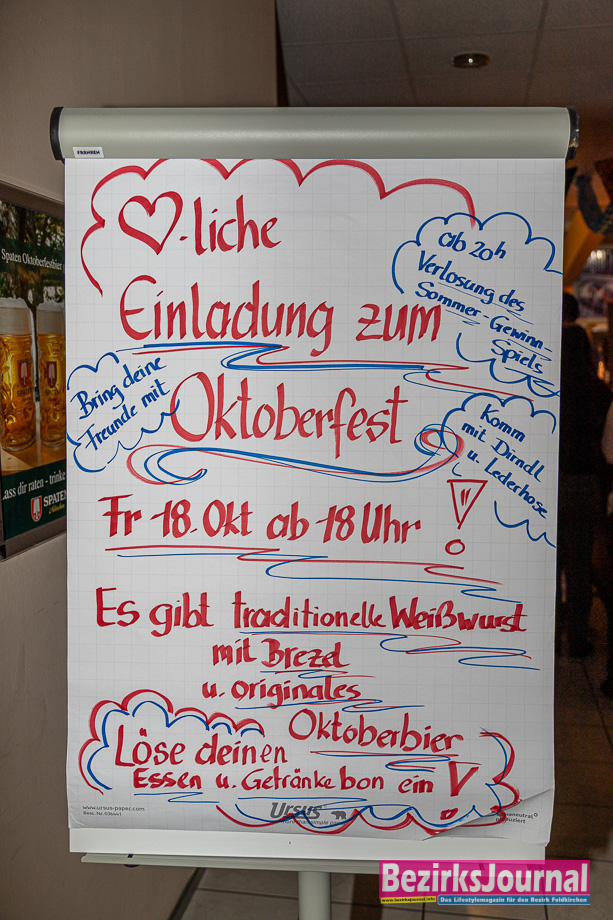 FRANKEN
♡-liche
Einladung zum
Oktoberfest
ab 20h
Verlosung des
Sommer-Gewinn-
Spiels
Bring deine
Freunde mit
Komm
mit Dirndl
u. Lederhose
!
Fr 18. Okt ab 18 Uhr
Es gibt traditionelle Weißwurst
mit Brezel
u. originales
Oktoberbier
Löse deinen
Essen u. Getränkebon ein!
www.ursus-paper.com
Best. Nr. 036441
Ursus
Spaten Oktoberfestbier
Lass dir raten - trinke
SPATEN
München
BezirksJournal
www.bezirksjournal.info
Das Lifestylemagazin für den Bezirk Feldkirchen